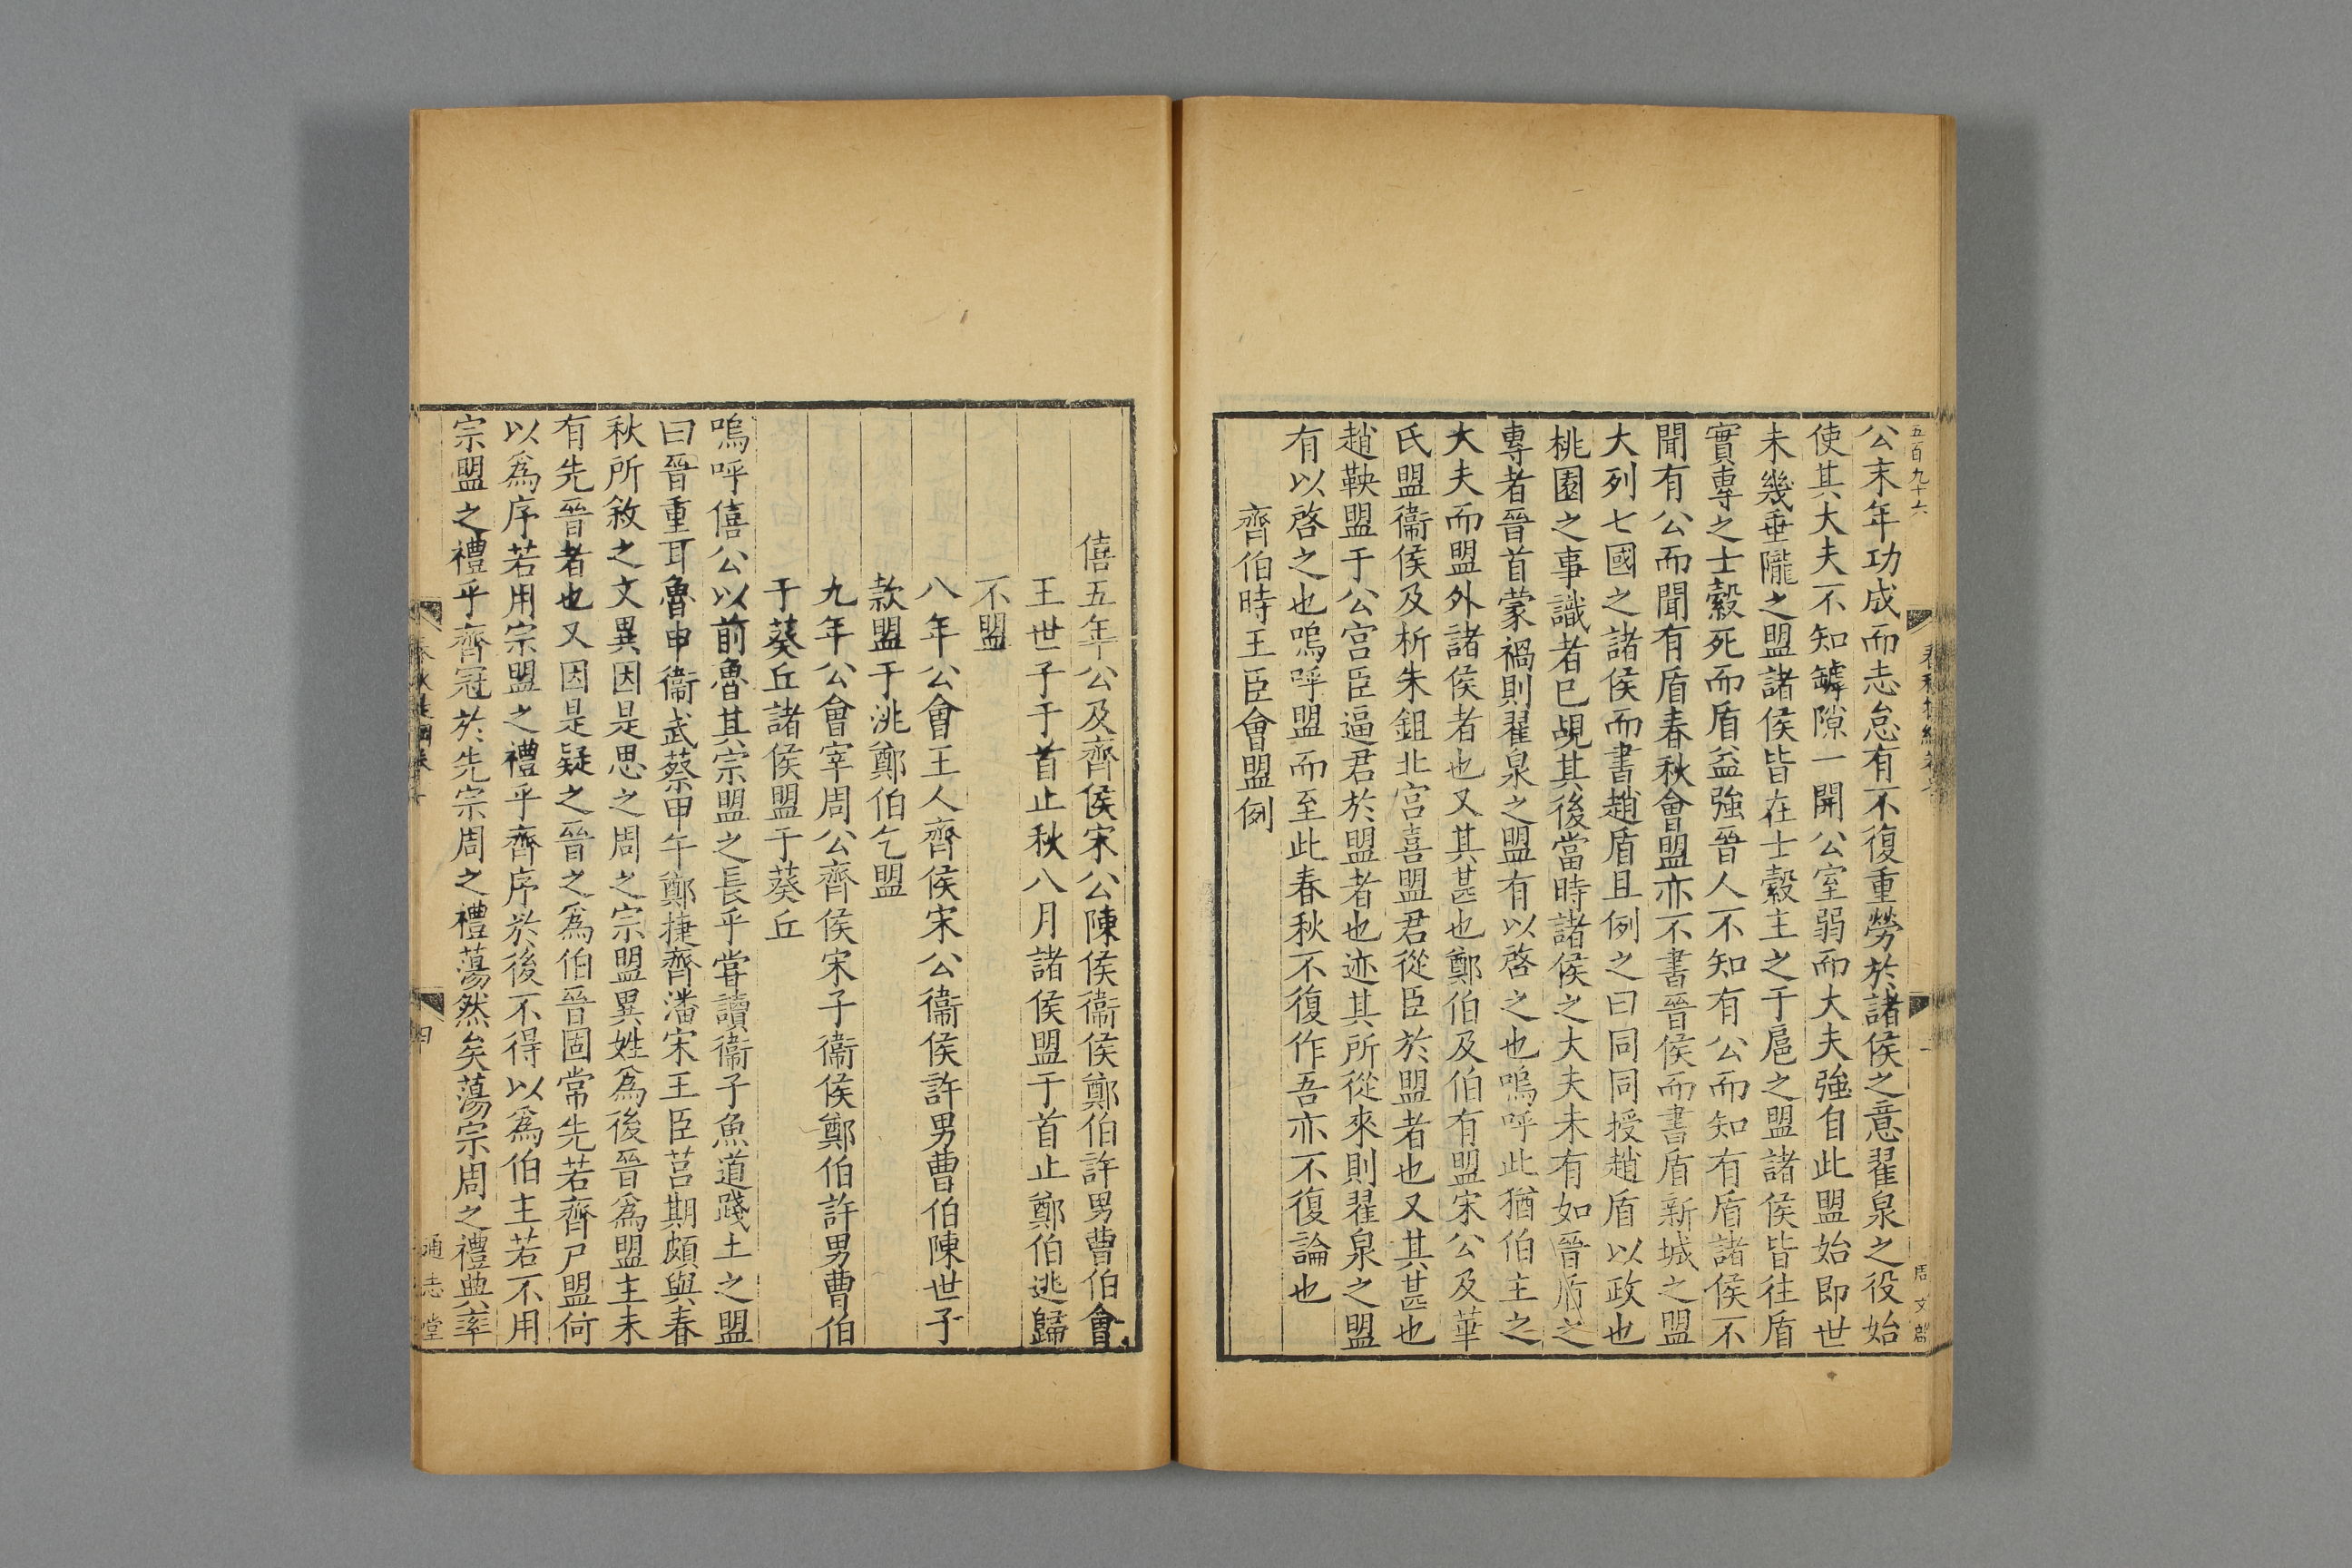 五百九十六
周文啓
公末年功成而志怠有不復重勞於諸侯之意翟泉之役始
使其大夫不知罅隙一開公室弱而大夫強自此盟始即世
未幾垂隴之盟諸侯皆在士縠主之于扈之盟諸侯皆往盾
實專之士縠死而盾益強晉人不知有公而知有盾諸侯不
聞有公而聞有盾春秋會盟亦不書晉侯而書盾新城之盟
大列七國之諸侯而書趙盾且例之曰同同授趙盾以政也
桃園之事識者已覘其後當時諸侯之大夫未有如晉盾之
專者晉首蒙禍則翟泉之盟有以啓之也嗚呼此猶伯主之
大夫而盟外諸侯者也又其甚也鄭伯及伯有盟宋公及華
氏盟衞侯及析朱鉏北宮喜盟君從臣於盟者也又其甚也
趙鞅盟于公宮臣逼君於盟者也迹其所從來則翟泉之盟
有以啓之也嗚呼盟而至此春秋不復作吾亦不復論也
齊伯時王臣會盟例
僖五年公及齊侯宋公陳侯衞侯鄭伯許男曹伯會
王世子于首止秋八月諸侯盟于首止鄭伯逃歸
不盟
八年公會王人齊侯宋公衞侯許男曹伯陳世子
款盟于洮鄭伯乞盟
九年公會宰周公齊侯宋子衞侯鄭伯許男曹伯
于葵丘諸侯盟于葵丘
嗚呼僖公以前魯其宗盟之長乎嘗讀衞子魚道踐土之盟
曰晉重耳魯申衞武蔡甲午鄭捷齊潘宋王臣莒期頗與春
秋所敘之文異因是思之周之宗盟異姓為後晉為盟主未
有先晉者也又因是疑之晉之為伯晉固常先若齊尸盟何
以為序若用宗盟之禮乎齊序於後不得以為伯主若不用
宗盟之禮乎齊冠於先宗周之禮蕩然矣蕩宗周之禮典率
通志堂